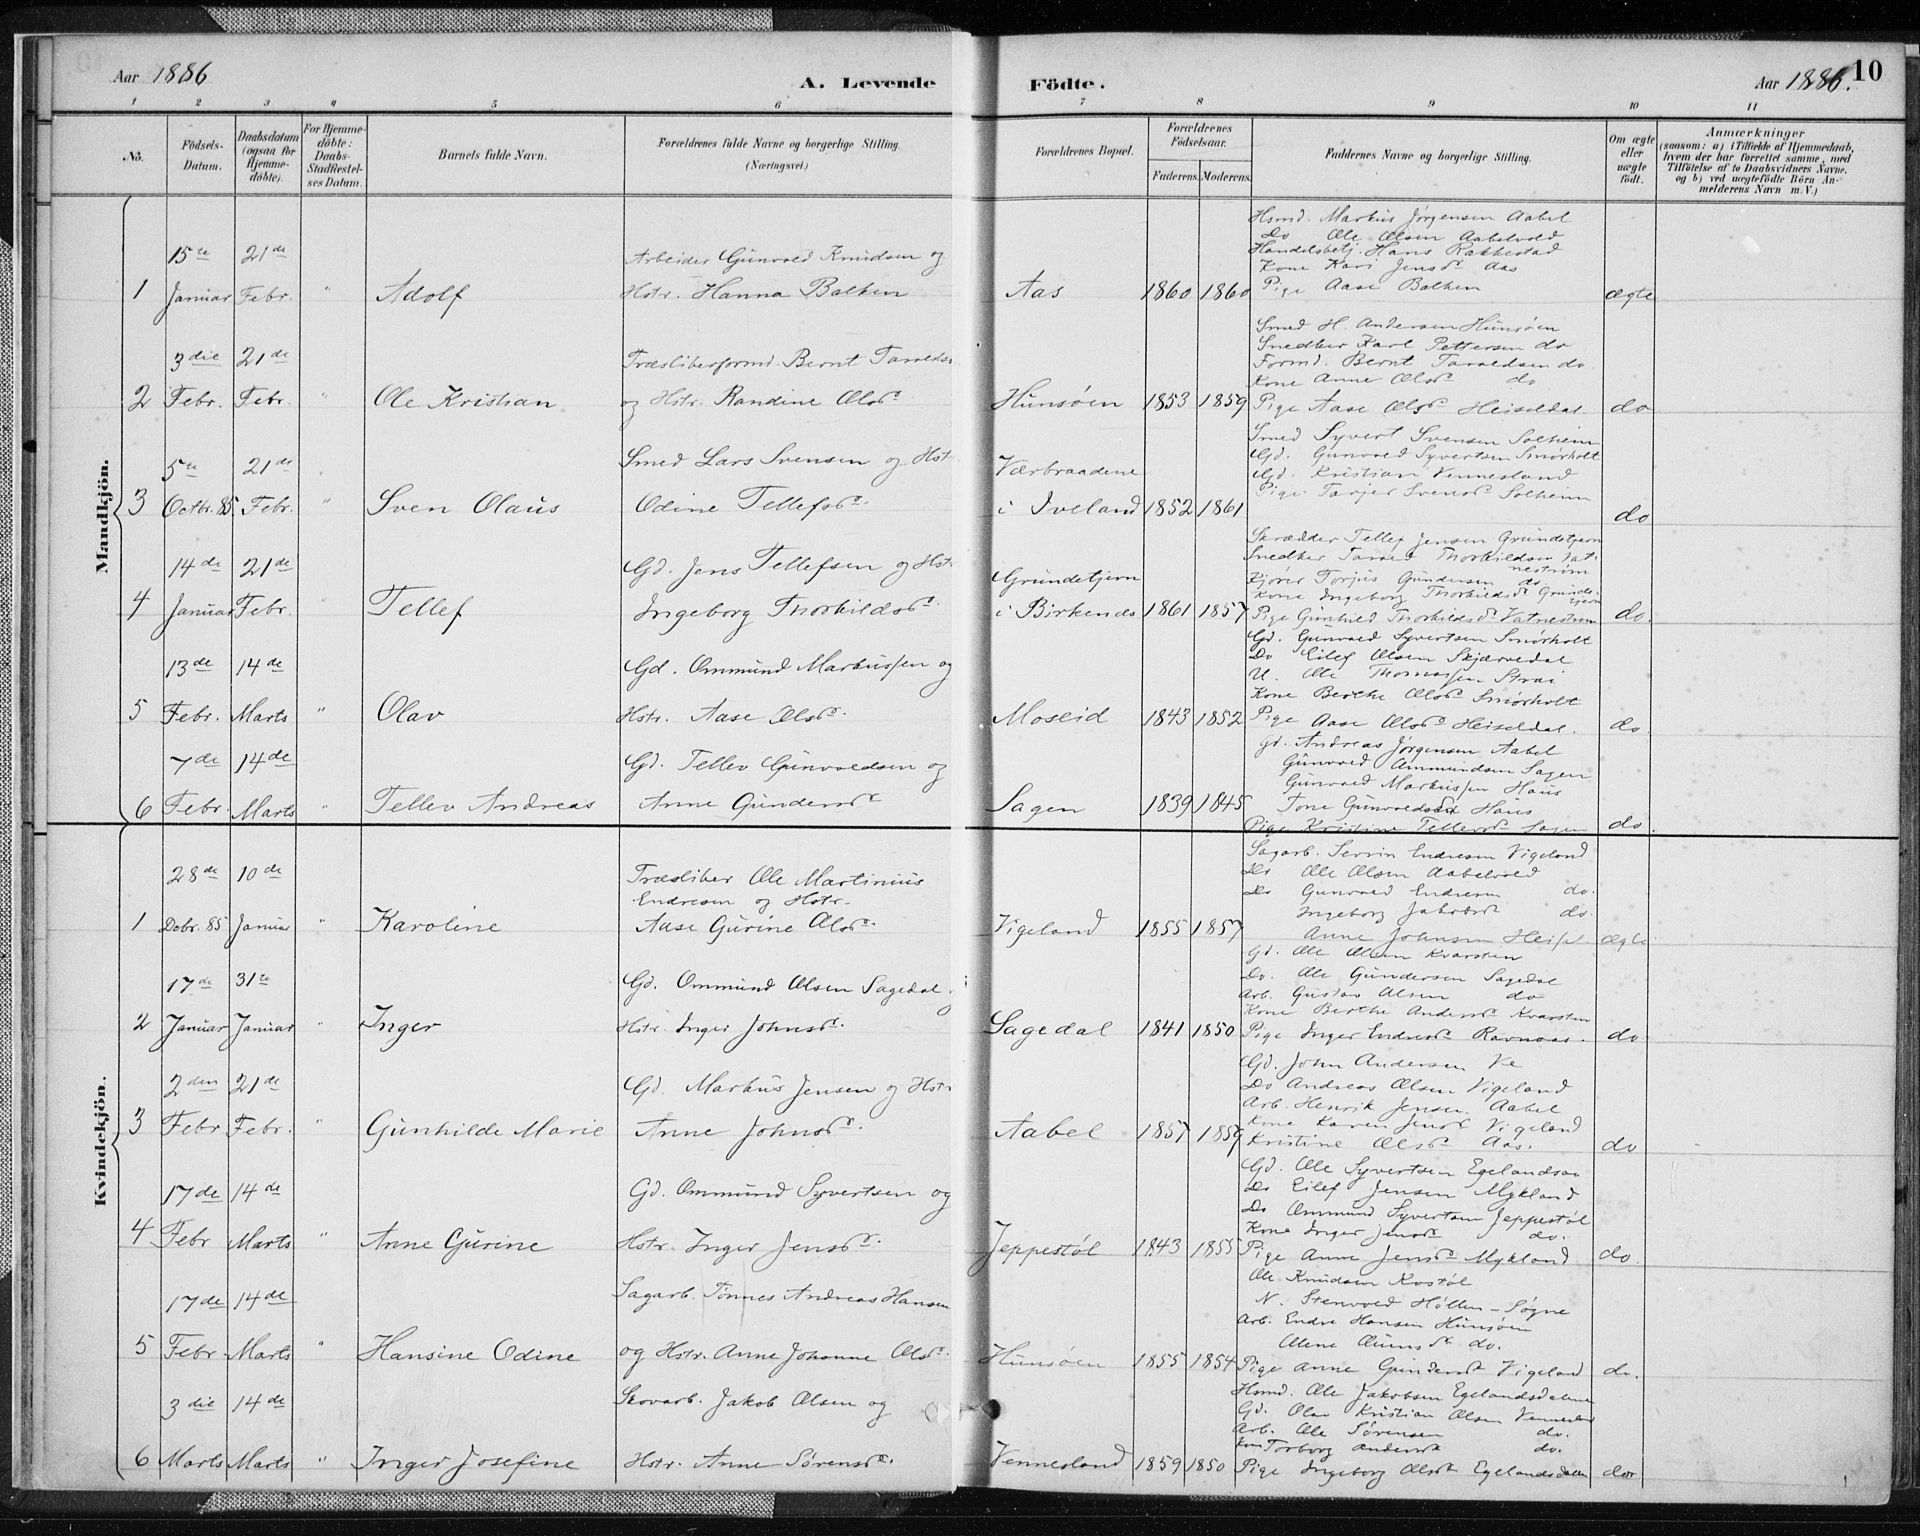 Aar 1886
A. Levende
Födte.
Aar 1886.
10
1 2 3 4 5 6 7 8 9 10 11
No.
Födsels-Datum.
Daabsdatum (ogsaa for Hjemme-döbte).
For Hjemme-döbte: Daabs-Stadfæstel-ses Datum.
Barnets fulde Navn.
Forældrenes fulde Navne og borgerlige Stilling.
(Næringsvei.)
Forældrenes Bopæl.
Forældrenes Födselsaar.
Faderens. Moderens.
Faddernes Navne og borgerlige Stilling.
Om ægte eller uægte födt.
Anmærkninger
(saasom: a) i Tilfælde af Hjemmedaab, hvem der har forrettet samme, med Tilföielse af to Daabsvidners Navne, og b) ved uægtefödte Börn An-melderens Navn m. V.)
Mandkjön.
15te 21de Arbeider Gunvald Knudsen og
1 Januar Febr. " Adolf Hstr. Hanna Balken Aas 1860 1860 ægte
Hsmd. Markus Jørgensen Aabel
Do Ole Olsen Aabelvold
Handelsbetj. Hans Rakkestad
Kone Kari Jensd. Aas
Pige Aase Balken
3die 21de Træsliberformd. Bernt Taraldsn
2 Febr. Febr. " Ole Kristian og Hstr. Randine Olsd. Hunsøen 1853 1859 do
Smed H. Andersen Hunsøen
Snedker Karl Pettersen do
Formd. Bernt Taraldsen do.
Kone Anne Olsd. do
Pige Aase Olsd. Heiseldal
5te 21de Smed Lars Svensen og Hst. Værbraadene
3 Octbr. 85 Febr. " Sven Olaus Odine Tellefsd. i Iveland 1852 1861 do
Smed Syvert Svensen Solheim
Gd. Gunvald Syvertsen Smørholt
Gd. Kristian Vennesland
Pige Tarjer Svensd. Solheim
14de 21de Gd. Jens Tellefsen og Hstr Grundetjern
4 Januar Febr. " Tellef Ingeborg Thorkildsd. i Birkenæs 1861 1857 do.
Skrædder Tellef Jensen Grundetjern
Snedker Tarald Thorkildsen Vat-nestrøm
Kjører Torjus Gundersen do
Kone Ingeborg Thorkildsd. Grunde-tjern
Pige Gunhild Thorkildsd. Vatnestrøm
13de 14de Gd. Ommund Markussen og
5 Febr. Marts " Olav Hstr. Aase Olsd. Moseid 1843 1852 do
Gd. Gunvald Syvertsen Smørholt
Do Eilef Olsen Skjærvedal
U. Ole Thomassen Strai
Kone Berthe Olsd. Smørholt
Pige Aase Olsd. Heiseldal.
7de 14de Gd. Tellev Gunvaldsen og
6 Febr. Marts " Tellev Andreas Anne Gundersd. Sagen 1839 1845 do.
Gd. Andreas Jørgensen Aabel
Gunvald Ommundsen Sagen
Gunvald Markussen Haus
Tone Gunvaldsd. Haus
Pige Kristine Tellevsd. Sagen
Kvindekjön.
28de 10de Træsliber Ole Martinius
Endresen og Hstr.
1 Debr. 85 Januar " Karoline Aase Gurine Olsd. Vigeland 1855 1857 ægte
Sagarb. Endresen Vigeland
Do Ole Olsen Aabelvold
Do Gunvald Endresen do.
Ingeborg Jakobsd. do.
Anne Johnsen
17de 31te Gd. Ommund Olsen Sagedal og
2 Januar Januar " Inger Hstr. Inger Johnsd. Sagedal 1841 1850 do
Gd. Ole Olsen Kvarsten
Do. Ole Gundersen Sagedal
Arb. Gustav Olsen do
Kone Berthe Andersd. Kvarsten
Pige Inger Endresd. Ravnaas.
2den 21de Gd. Markus Jensen og Hstr
3 Febr Febr. " Gunhilde Marie Anne Johnsd. Aabel 1857 1859 do
Gd. John Andersen Ve
Do Andreas Olsen Vigeland
Arb. Henrik Jensen Aabel
Kone Karen Jensd. Vigeland
Kristine Olsd. Aas.
17de 14de Gd. Ommund Syvertsen og
4 Febr Marts Anne Gurine Hstr. Inger Jensd. Jeppestøl 1843 1855 do.
Gd. Ole Syvertsen Egelandsaa
Do Eilef Jensen Mykland
Do Ommund Syvertsen Jeppestøl
Kone Inger Jensd. do.
Pige Anne Jensd. Mykland
17de 14de Sagarb. Tønnes Andreas Hansen
5 Febr. Marts " Hansine Odine og Hstr. Anne Johanne Olsd. Hunsøen 1855 1854 do.
Ole Knudsen Kostøl
N. Stenvold Høllen - Søgne
Arb. Endre Hansen Hunsøen
do.
Pige Anne Gundersd. Vigeland
3die 14de Skovarb. Jakob Olsen og
6 Marts Marts " Inger Josefine Hstr. Anne Sørensd. Vennesland 1859 1850 do
Hsmd. Ole Jakobsen Egelandsdalen
Gd. Olav Kristian Olsen Vennesland
Arb. Ole Sørensen do.
Kone Torborg Andersd. do.
Pige Ingeborg Olsd. Egelandsdalen